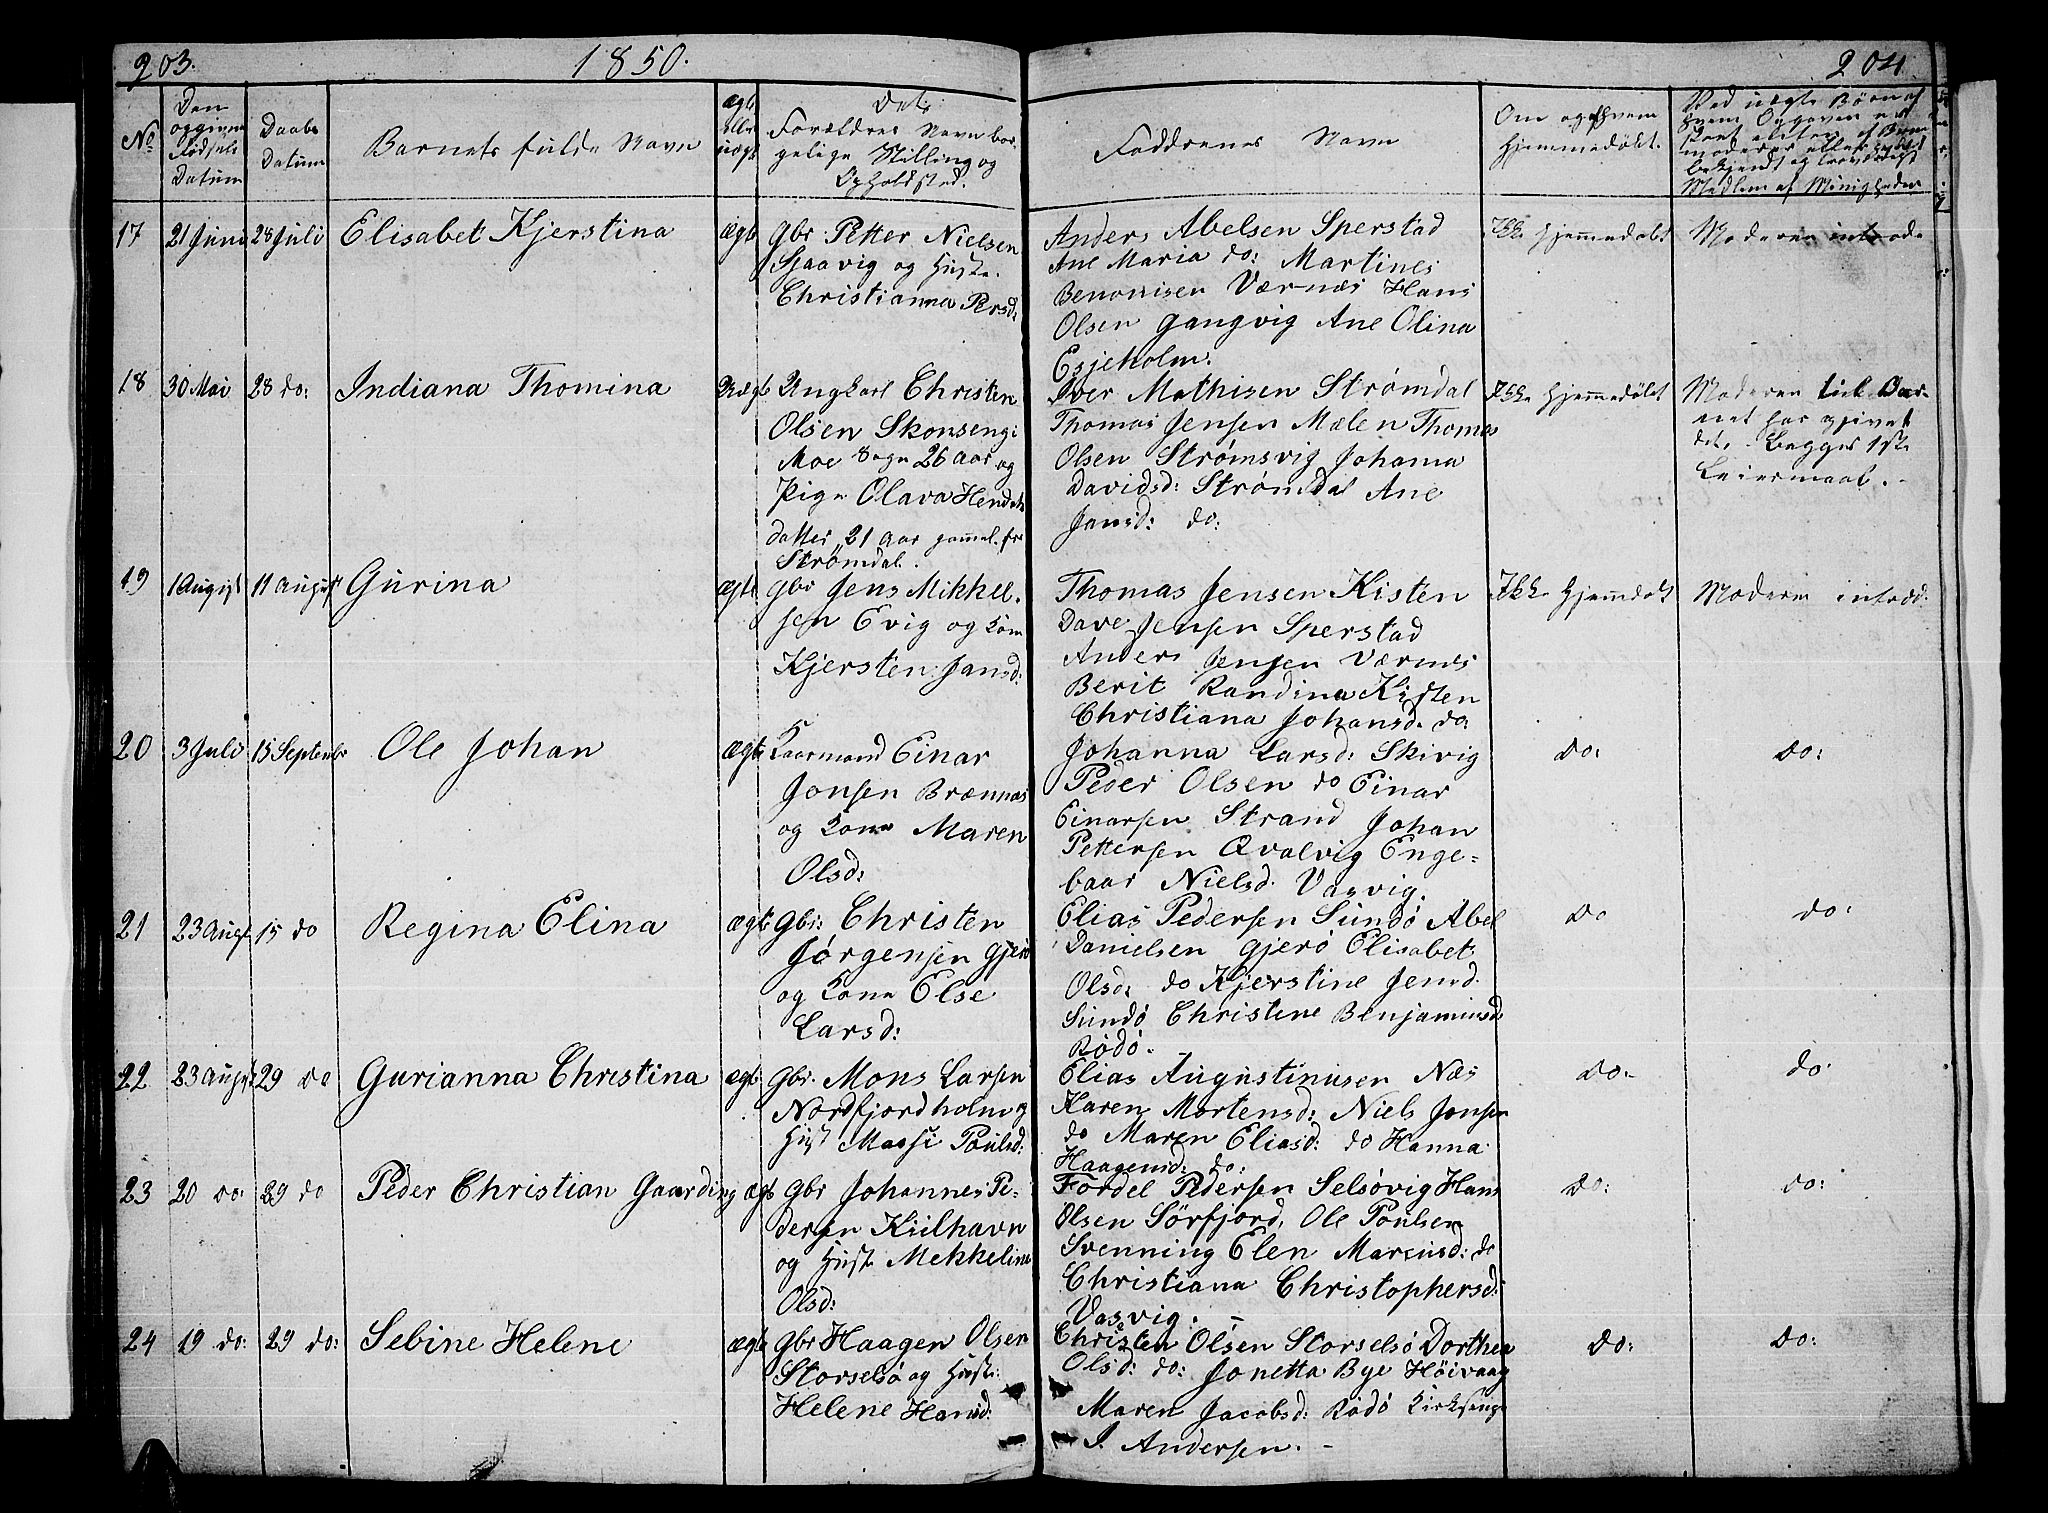 203.
1850.
204
No
Den
opgivne
Fødsels
Datum
Daabs
Datum
Barnets fulde Navn
ægte
eller
uægte
Det
Forældres Navn bor-
gelige Stilling og
Opholdsted.
Faddrenes Navn
Om og af hvem
Hjemmedøbt.
Ved uægte Børn af
hvem Opgaven er
Medlem af Menigheden
17
21 Juni
28 Juli
Elisabet Kjerstina
ægte
Gbr. Petter Nielsen
Sjaavig og Hust.
Christianna Persd:
Anders Abelsen Sperstad
Ane Maria do: Martines
Benonisen Værnæs Hans
Olsen Gangvig Ane Olina
Esjeholm.
Ikke Hjemmedøbt
Moderen introd
18
30 Mai
28 do:
Indiana Thomina
Uægte
Ungkarl Christen
Olsen Skonseng
Moe Sogn 26 Aar og
Pige Olava Hendriks
datter 21 Aar gammel fra
Strømdal.
Iver Mathisen Strømdal
Thomas Jensen Mælen Thomas
Olsen Strømsvig Johanna
Davidsd: Strømdal Ane
Jansd: do:
Ikke Hjemmedøbt
Moderen til Bar-
net har opgivet
det. Begges 1ste
Leiermaal.
19
1 August
11 August
Gurina
ægte
Gbr Jens Mikkel-
sen Evig og Kone
Kjersten Jansd:
Thomas Jensen Kisten
Dave Jensen Sperstad
Anders Jensen Værnæs
Berit Randina Kisten
Christiana Johansd. do.
Ikke Hjemmdøbt
Moderen introd:
20
3 Juli
15 Septembr
Ole Johan
ægte
Kaarmand Einar
Jonsen Brænnæs
og Kone Maren
Olsd:
Johanna Larsd: Skivig
Peder Olsen do Einar
Einarsen Strand Johan
Pettersen Qvalvig Enge-
baar Nielsd. Vasvig.
do:
do:
21
23 Augst
15 do
Regina Elina
ægte
Gbr: Christen
Jørgensen Gjerø
og Kone Else
Larsd:
Elias Pedersen Sundø Abel
Danielsen Gjerø Elisabet
Olsd: do Kjerstine Jensd.
Sundø Christene Benjaminsd:
Rødø.
do
do:
22
23 August
29 do
Gurianna Christina
ægte
Gbr. Mons Larsen
Nordfjordholm og
Hust Massi Poulsd:
Elias Augustinusen Næs
Karen Mortensd: Niels Jonsen
do Maren Eliasd: do Hanna
Haagensd: do:
do:
do:
23
20 do:
29 do
Peder Christian Gaarding
ægte
Gbr Johannes Pe-
dersen Kiilhavn
og Hust Mekkeline
Olsd:
Fordel Pedersen Selsøvig Hans
Olsen Sörfjord, Ole Poulsen
Svenning Elen Marcusd: do
Christiana Christophersd:
Vasvig.
do:
do:
24
19 do:
29 do:
Sebine Helene
ægte
Gbr Haagen Olsen
Storselsø og Hust:
Helene Hansd:
Christen Olsen Storselsø Dorthea
Olsd: do: Jonetta Bye Höivaag
Maren Jacobsd: Rødø Kirksanger
J. Andersen.
do:
do: